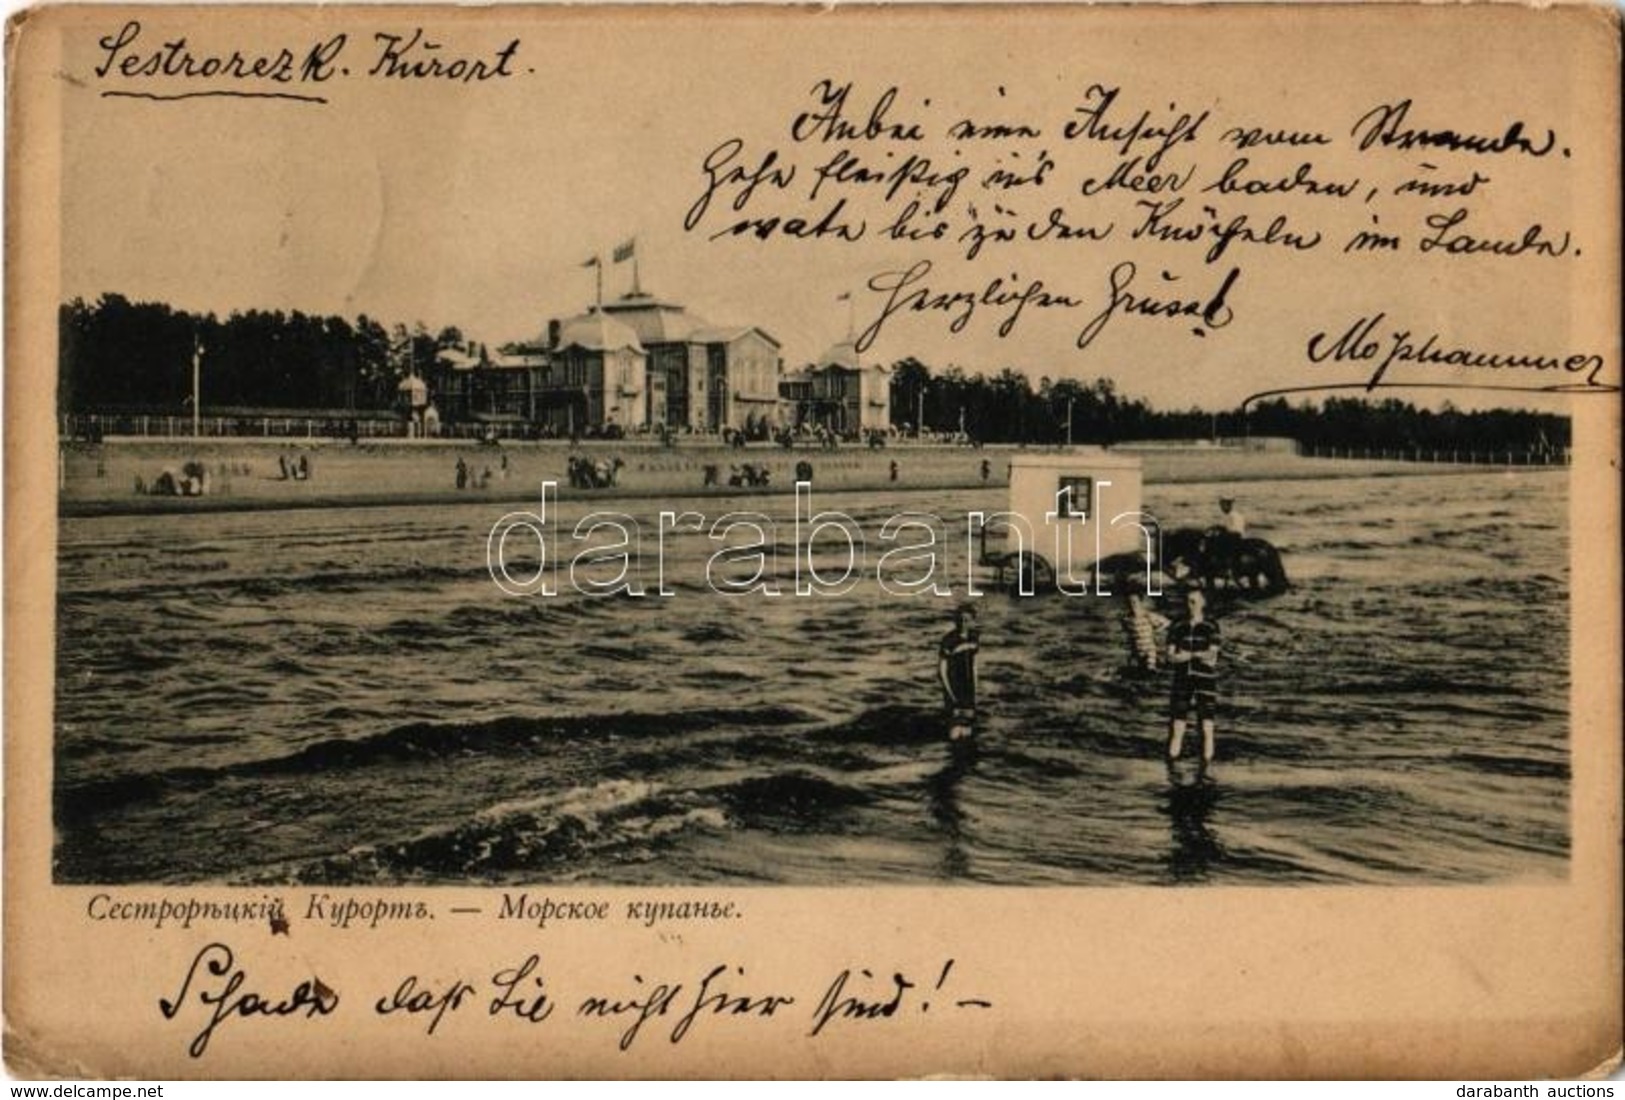 Sestrorezk. Kurort.
Anbei eine Ansicht vom Strande.
Gehe fleißig in's Meer baden, und
wate bis zu den Knöcheln im Sande.
Herzlichen Gruss!
darabanth
Сестрорѣцкій Курортъ. — Морское купанье.
Schade daß Sie nicht hier sind! —
www.darabanth.com
darabanth auctions